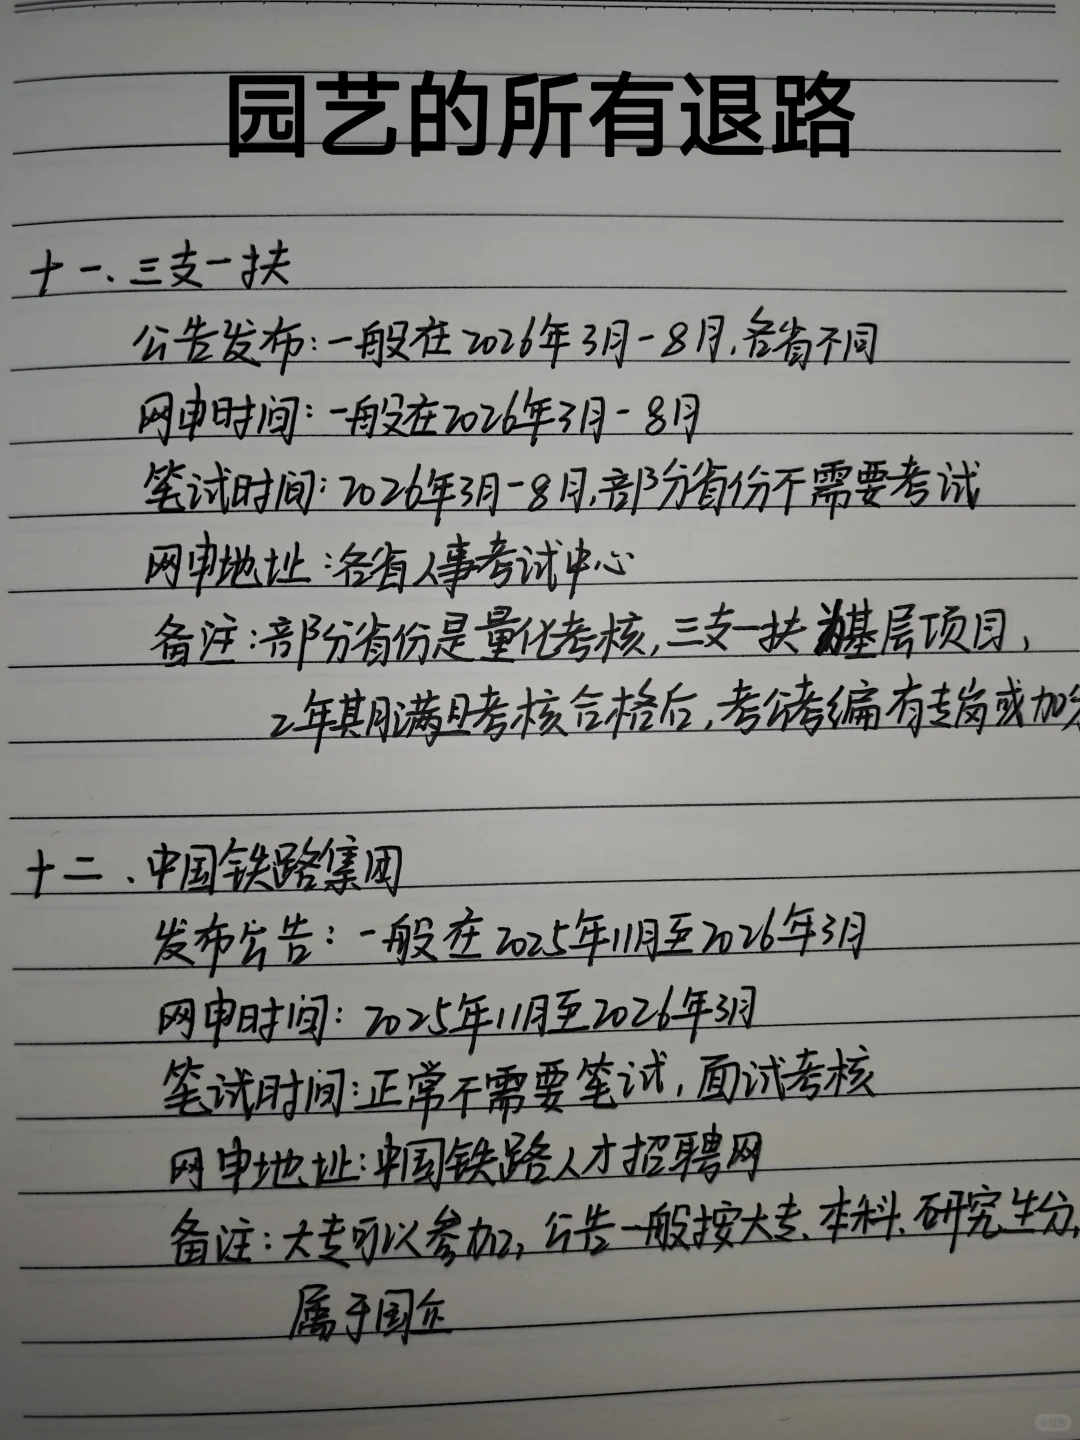 园艺的所有退路
十一、三支一扶
公告发布:一般在2026年3月-8月,各省不同
网申时间:一般在2026年3月-8月
笔试时间:2026年3月-8月,部分省份不需要考试
网申地址:各省人事考试中心
备注:部分省份是量化考核,三支一扶为基层项目,
2年期满且考核合格后,考公考编有专岗或加分
十二、中国铁路集团
发布公告:一般在2025年11月至2026年3月
网申时间:2025年11月至2026年3月
笔试时间:正常不需要笔试,面试考核
网申地址:中国铁路人才招聘网
备注:大专可以参加,公告一般按大专、本科、研究生分,
属于国企